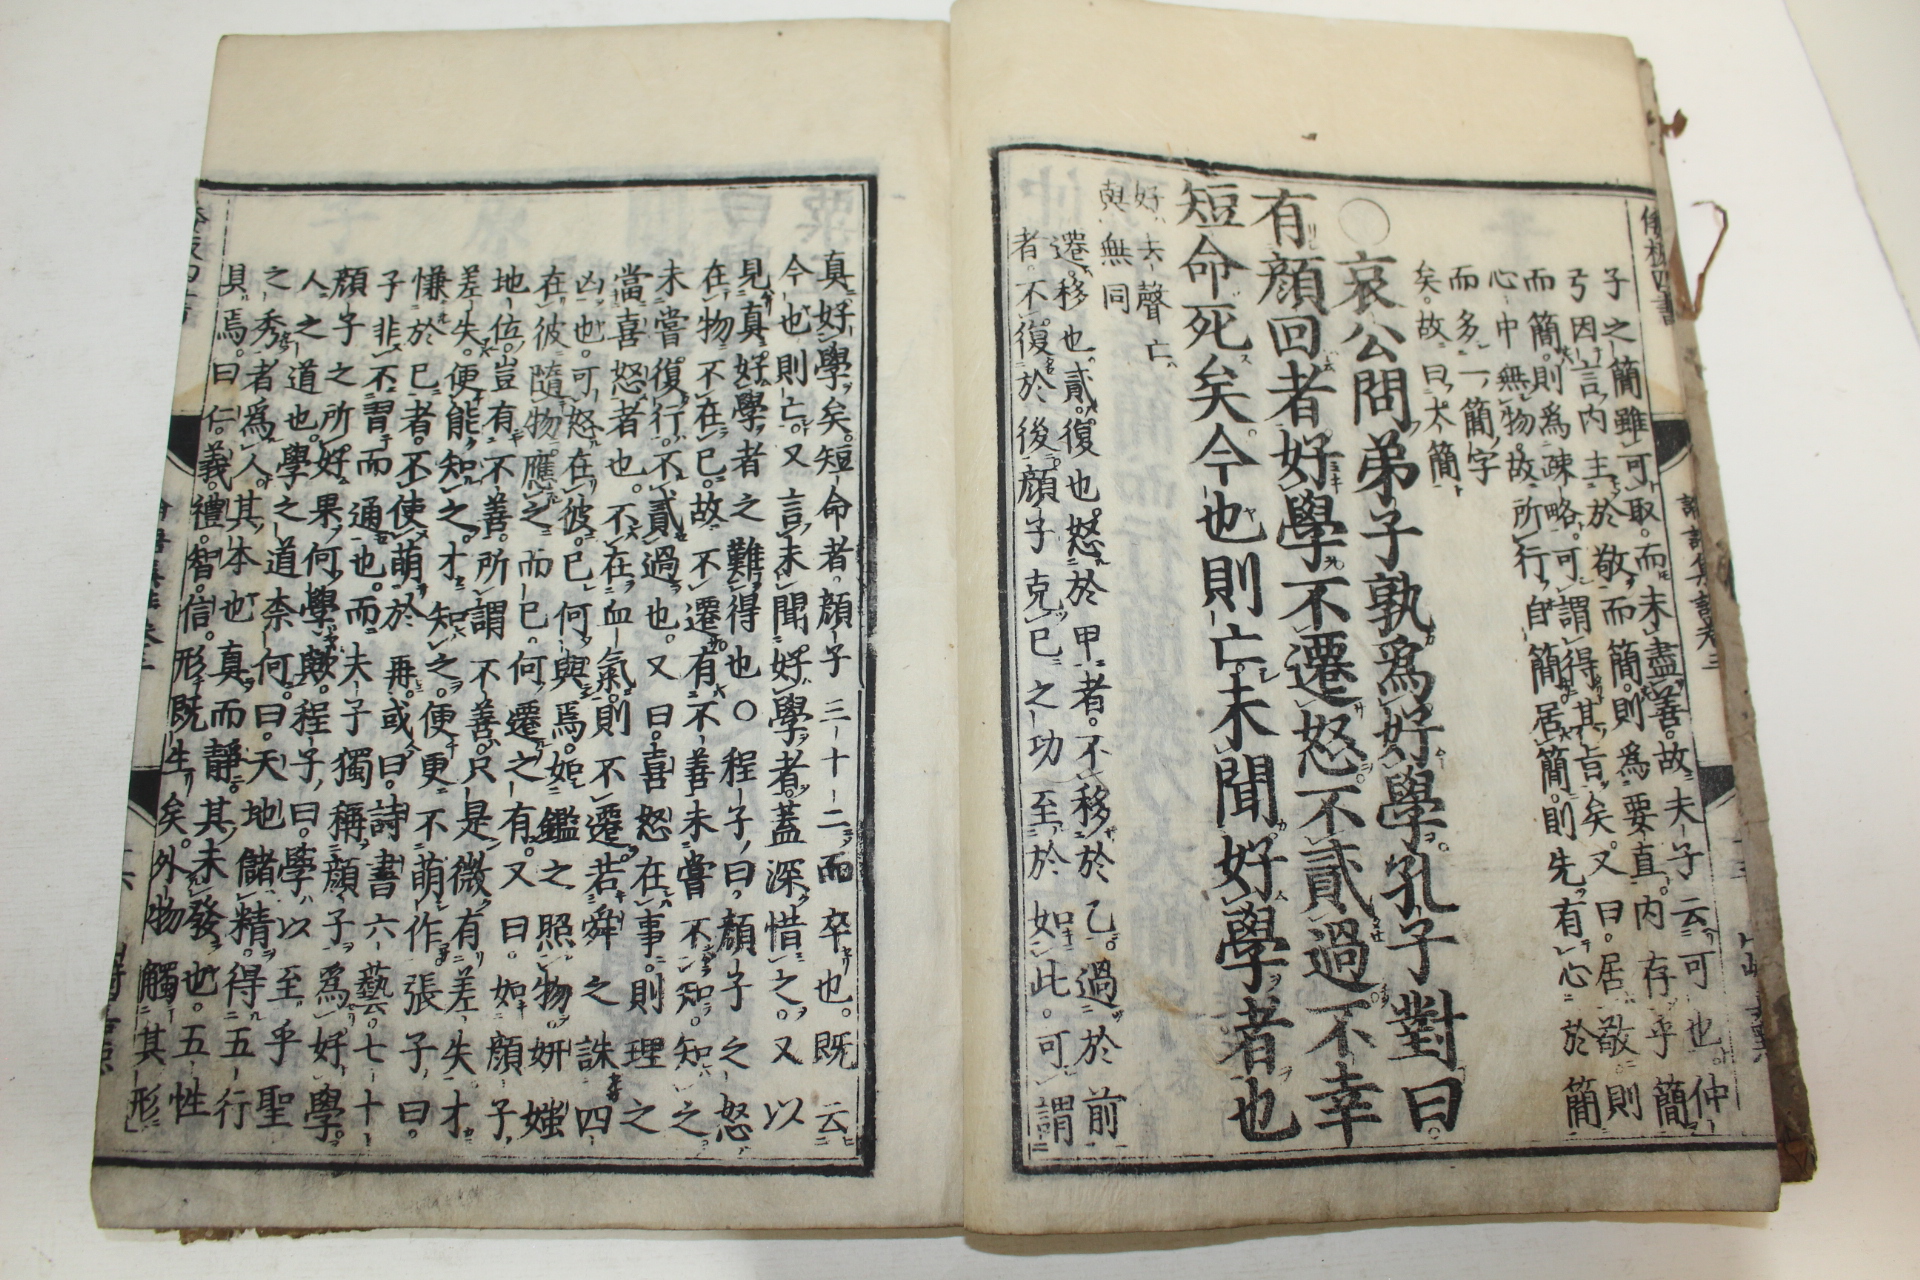 子之簡雖可取而未盡善故夫子云可也仲
弓因言内主於敬而簡則爲要直内存乎簡
而簡則爲疎略可謂得其旨矣又曰居敬則
心中無物故所行自簡居簡則先有心於簡
而多一簡字
矣故曰太簡
○哀公問弟子孰爲好學孔子對曰
有顔回者好學不遷怒不貳過不幸
短命死矣今也則亡未聞好學者也
好去聲亡
與無同
遷移也貳復也怒於甲者不移於乙過於前
者不復於後顔子克己之功至於如此可謂
真好學矣短命者顔子三十二而卒也既云
今也則亡又言未聞好學者蓋深惜之又以
見真好學者之難得也○程子曰顔子之怒
在物不在己故不遷有不善未嘗不知知之
未嘗復行不貳過也又曰喜怒在事則理之
當喜怒者也不在血氣則不遷若舜之誅四
凶也可怒在彼己何與焉如鑑之照物妍媸
在彼隨物應之而已何遷之有又曰如顔子
地位豈有不善所謂不善只是微有差失才
差失便能知之才知之便更不萌作張子曰
慊於己者不使萌於再或曰詩書六藝七十
子非不習而通也而夫子獨稱顔子爲好學
顔子之所好果何學歟程子曰學以至乎聖
人之道也學之道柰何曰天地儲精得五行
之秀者爲人其本也真而靜其未發也五性
具焉曰仁義禮智信形既生矣外物觸其形